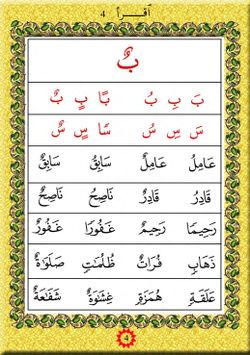 اقرأ 4
بٌ
بَ بِ بُ بًا بٍ بٌ
سَ سِ سُ سًا سٍ سٌ
عَامِلُ عَامِلٌ سَابِقُ سَابِقٌ
قَادِرُ قَادِرٌ نَاصِحُ نَاصِحٌ
رَحِيمًا رَحِيمٌ غَفُورًا غَفُورٌ
ذَهَابٍ فُرَاتٌ ظُلُمَاتٍ صَلَوٰةٌ
عَلَقَةٍ هُمَزَةٍ غِشَوَةٌ شَفَعَةٌ
4